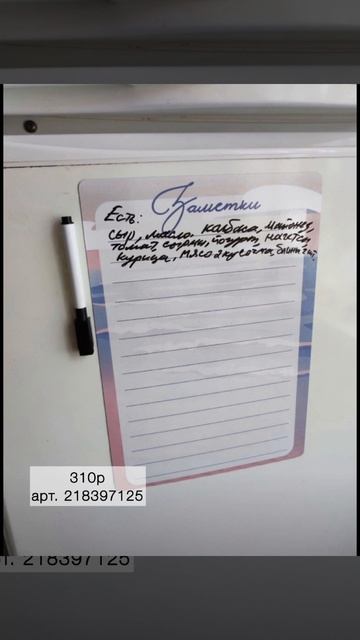 Заметки
Есть:
сыр, масло колбаса, майонез,
томат, сосиски, йогурт, нагетсы
курица, мясо 2 кусочка, блинчи
310р
арт. 218397125
т. 218397125